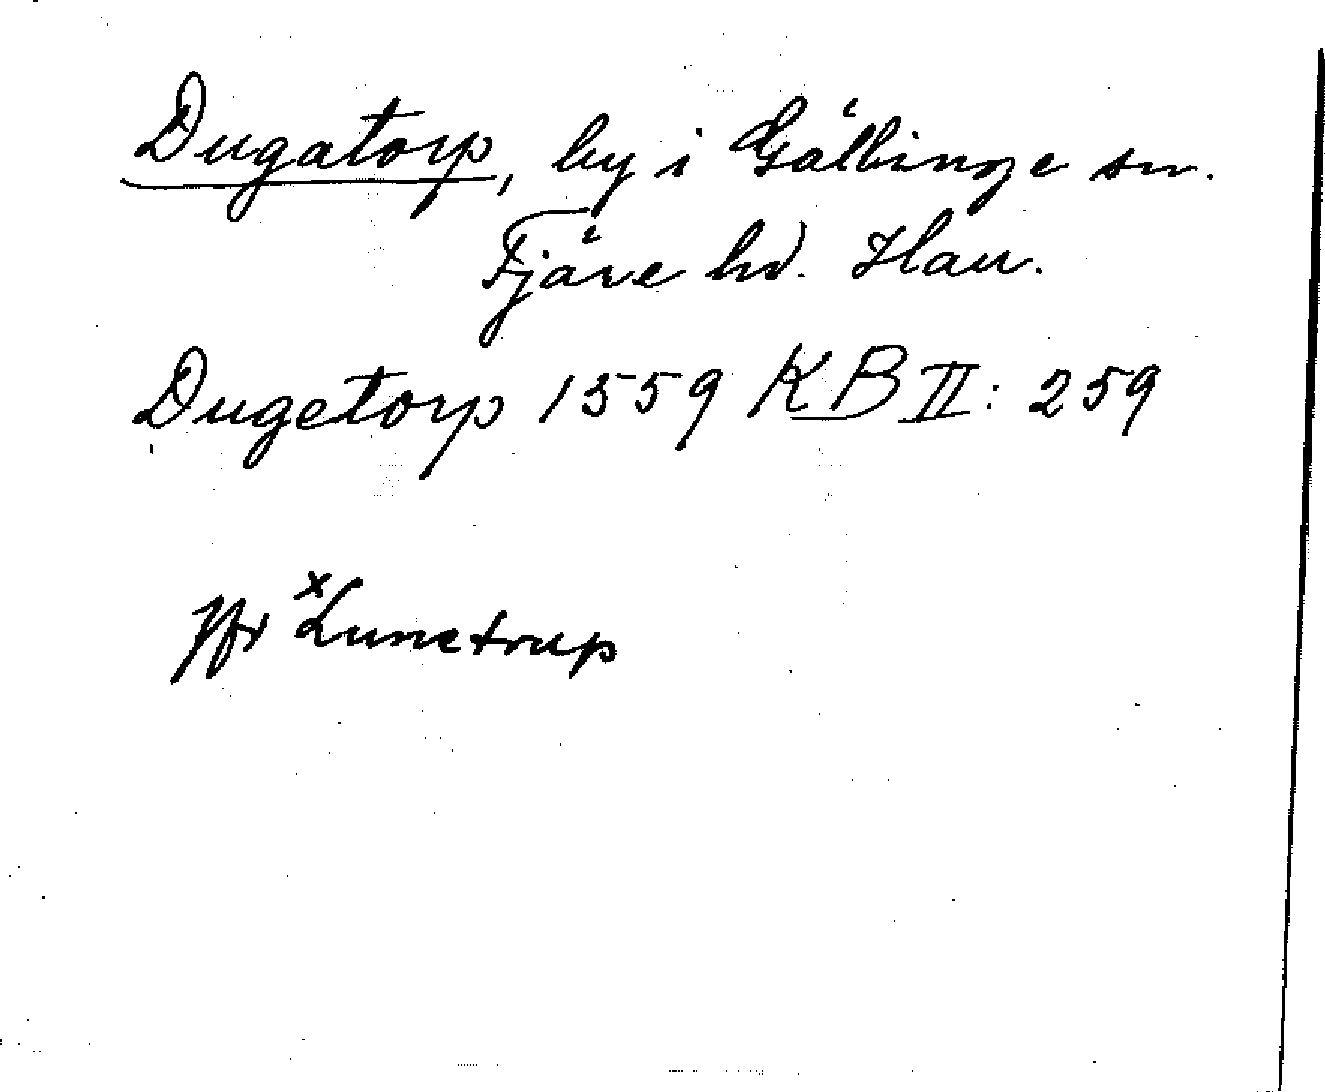 Dugatorp, by i Gällinge sn.
Fjäre hd. Hall.
Dugetorp 1559 KB II: 259
Jfr ×Lunetrup